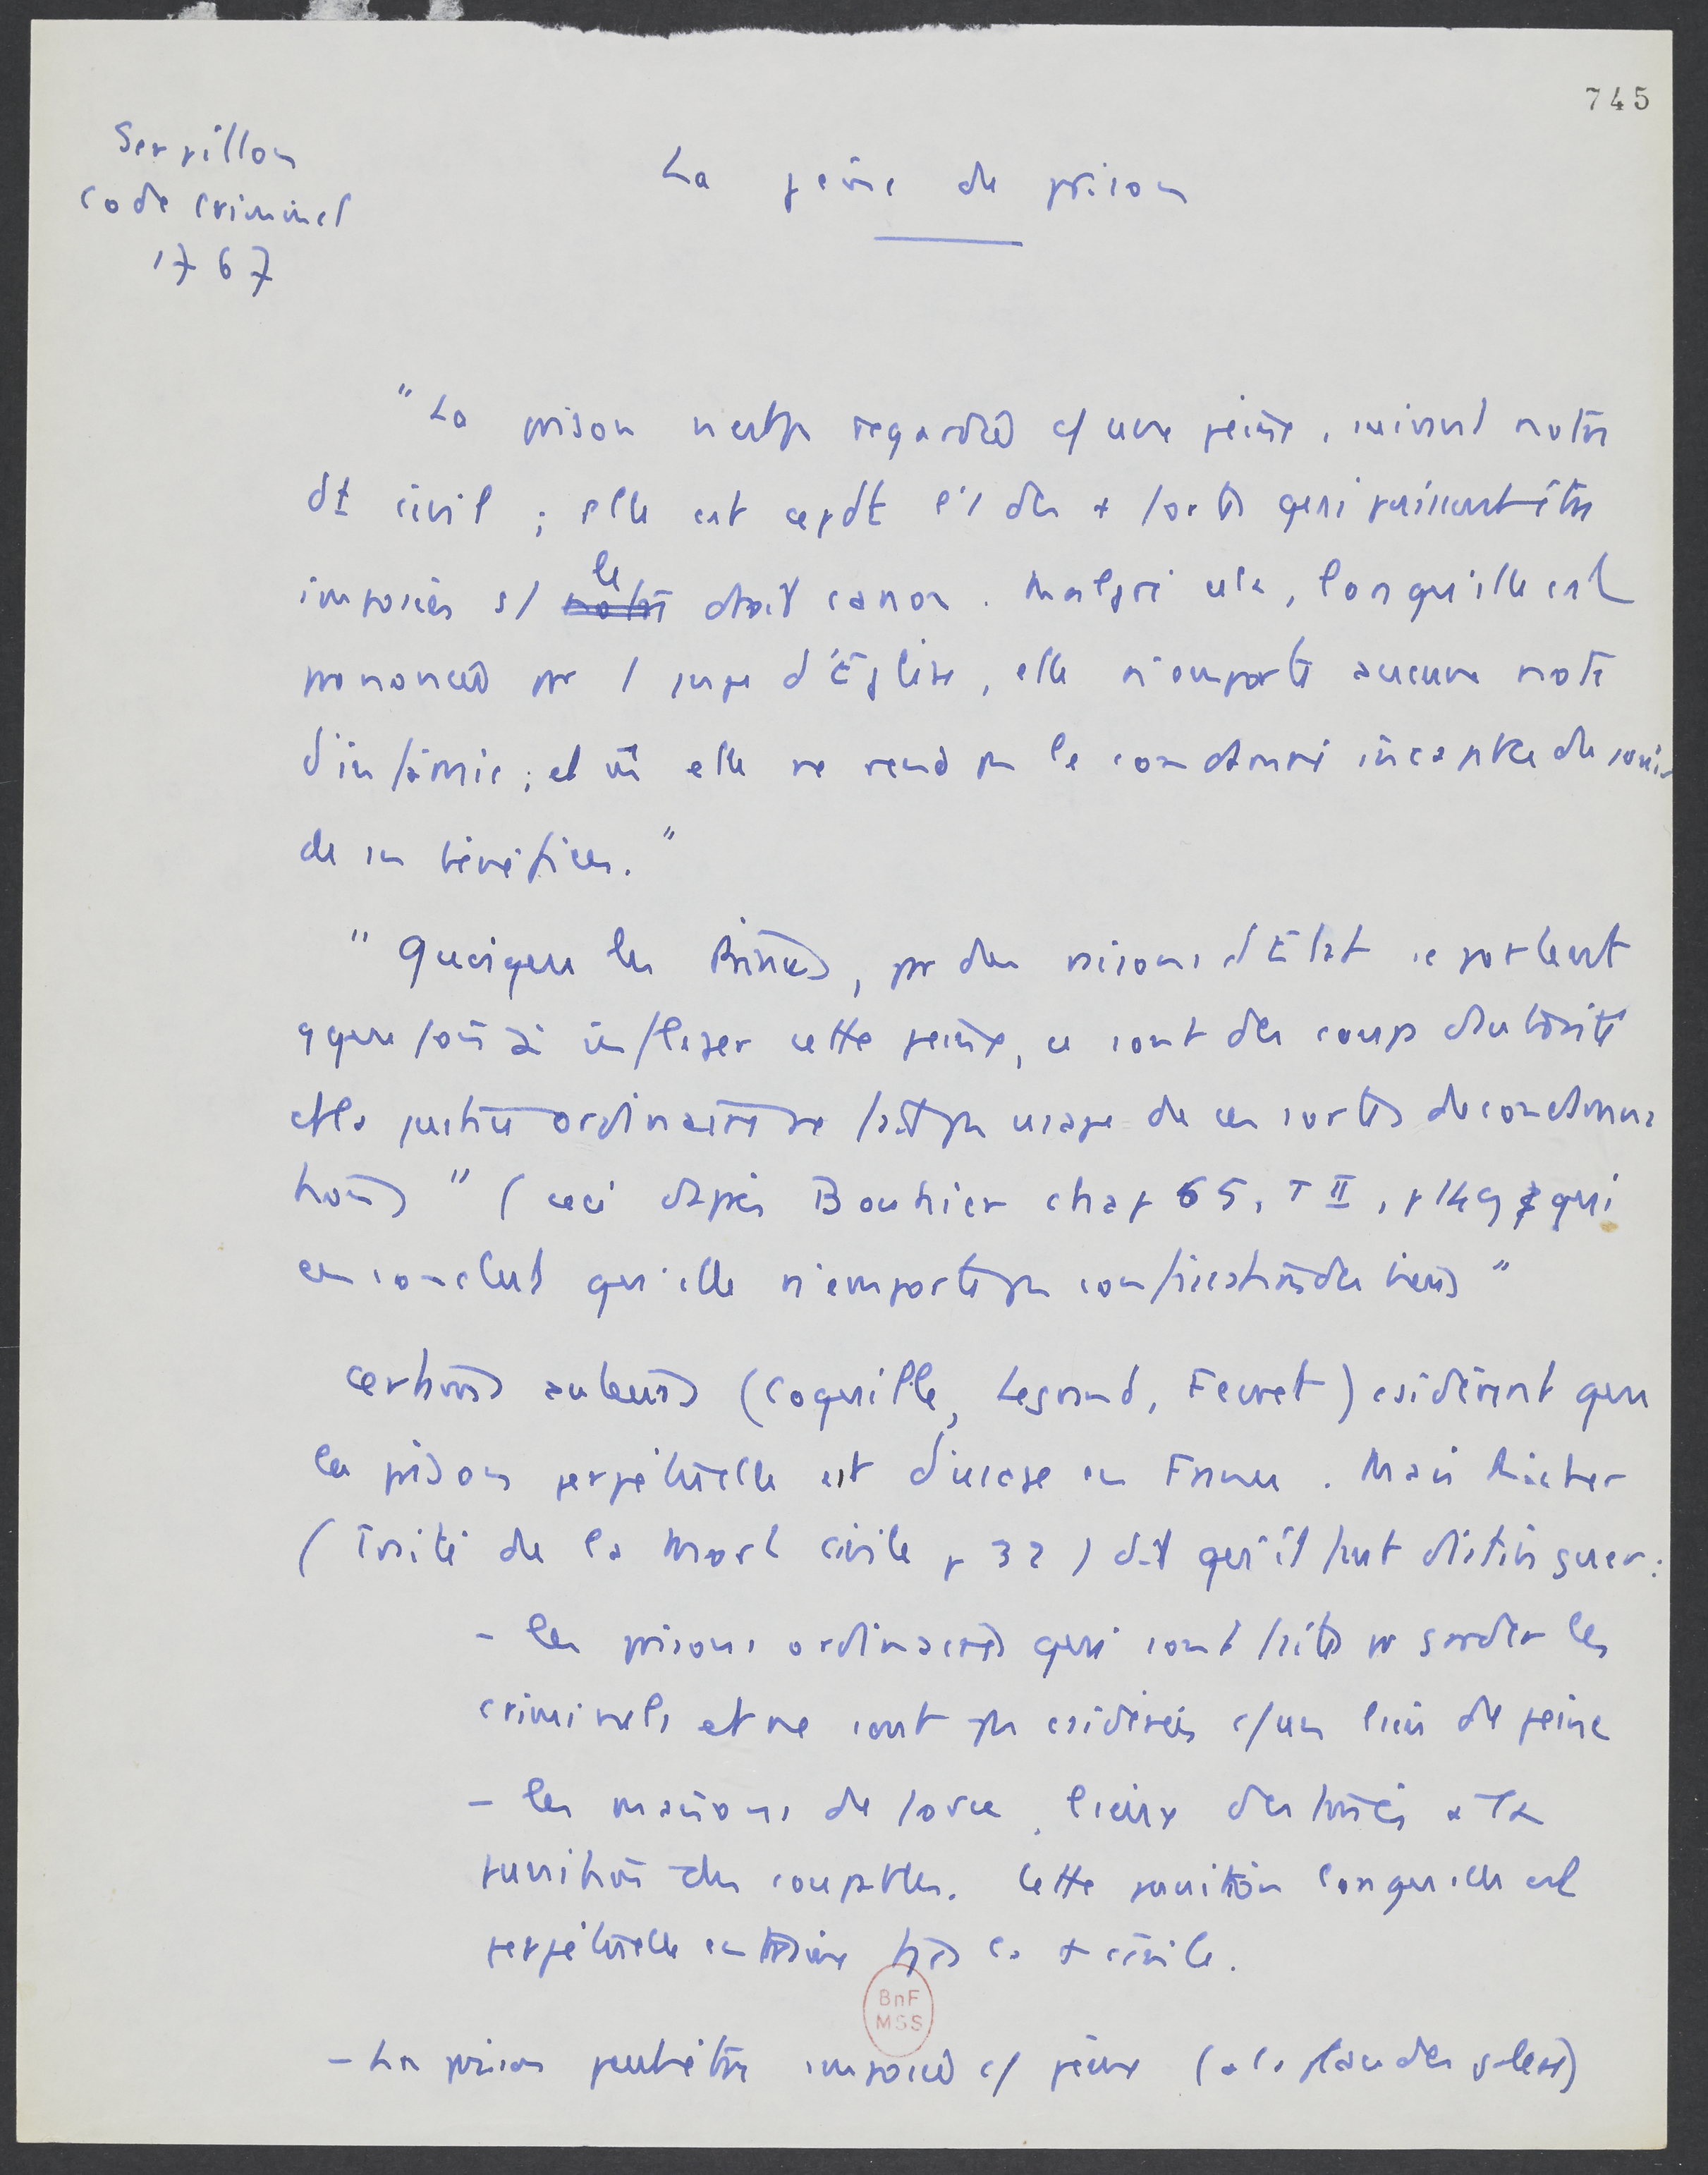 745
Serpillon
code criminel
1767
La peine de prison
"La prison n'est pas regardée c/ une peine, suivant notre
dt civil ; elle est cepdt l'1 des + fortes qui puissent être
imposées s/ le droit canon. Malgré cela, lorsqu'elle est
prononcée par l juge d'Église, elle n'emporte aucune note
d'infâmie ; et elle ne rend pas le condamné incapable de jouir
de ses bénéfices."
"Quoique les Princes, pr des raisons d'État se portent
qque fois à infliger cette peine, ce sont des coups d'autorité
et la justice ordinaire ne fait pas usage de ces sortes de condamna
tions" (ceci d'après Bouhier chap 55, T II, p 149 qui
en conclut qu'elle n'emporte pas confiscation des biens"
Certains auteurs (Coquille, Legrand, Fevret) csidèrent que
la prison perpétuelle est d'usage en France. Mais Richer
(Traité de la Mort civile p 32) dit qu'il faut distinguer :
- les prisons ordinaires qui sont faites pr garder les
criminels et ne sont pas csidérées c/ un lieu de peine
- les maisons de force, lieux destinés à la
punition des coupables. Cette punition lorsqu'elle est
perpétuelle entraîne tjrs la + civile.
BnF
MSS
- La prison peut être imposée c/ peine (à la place des galères)